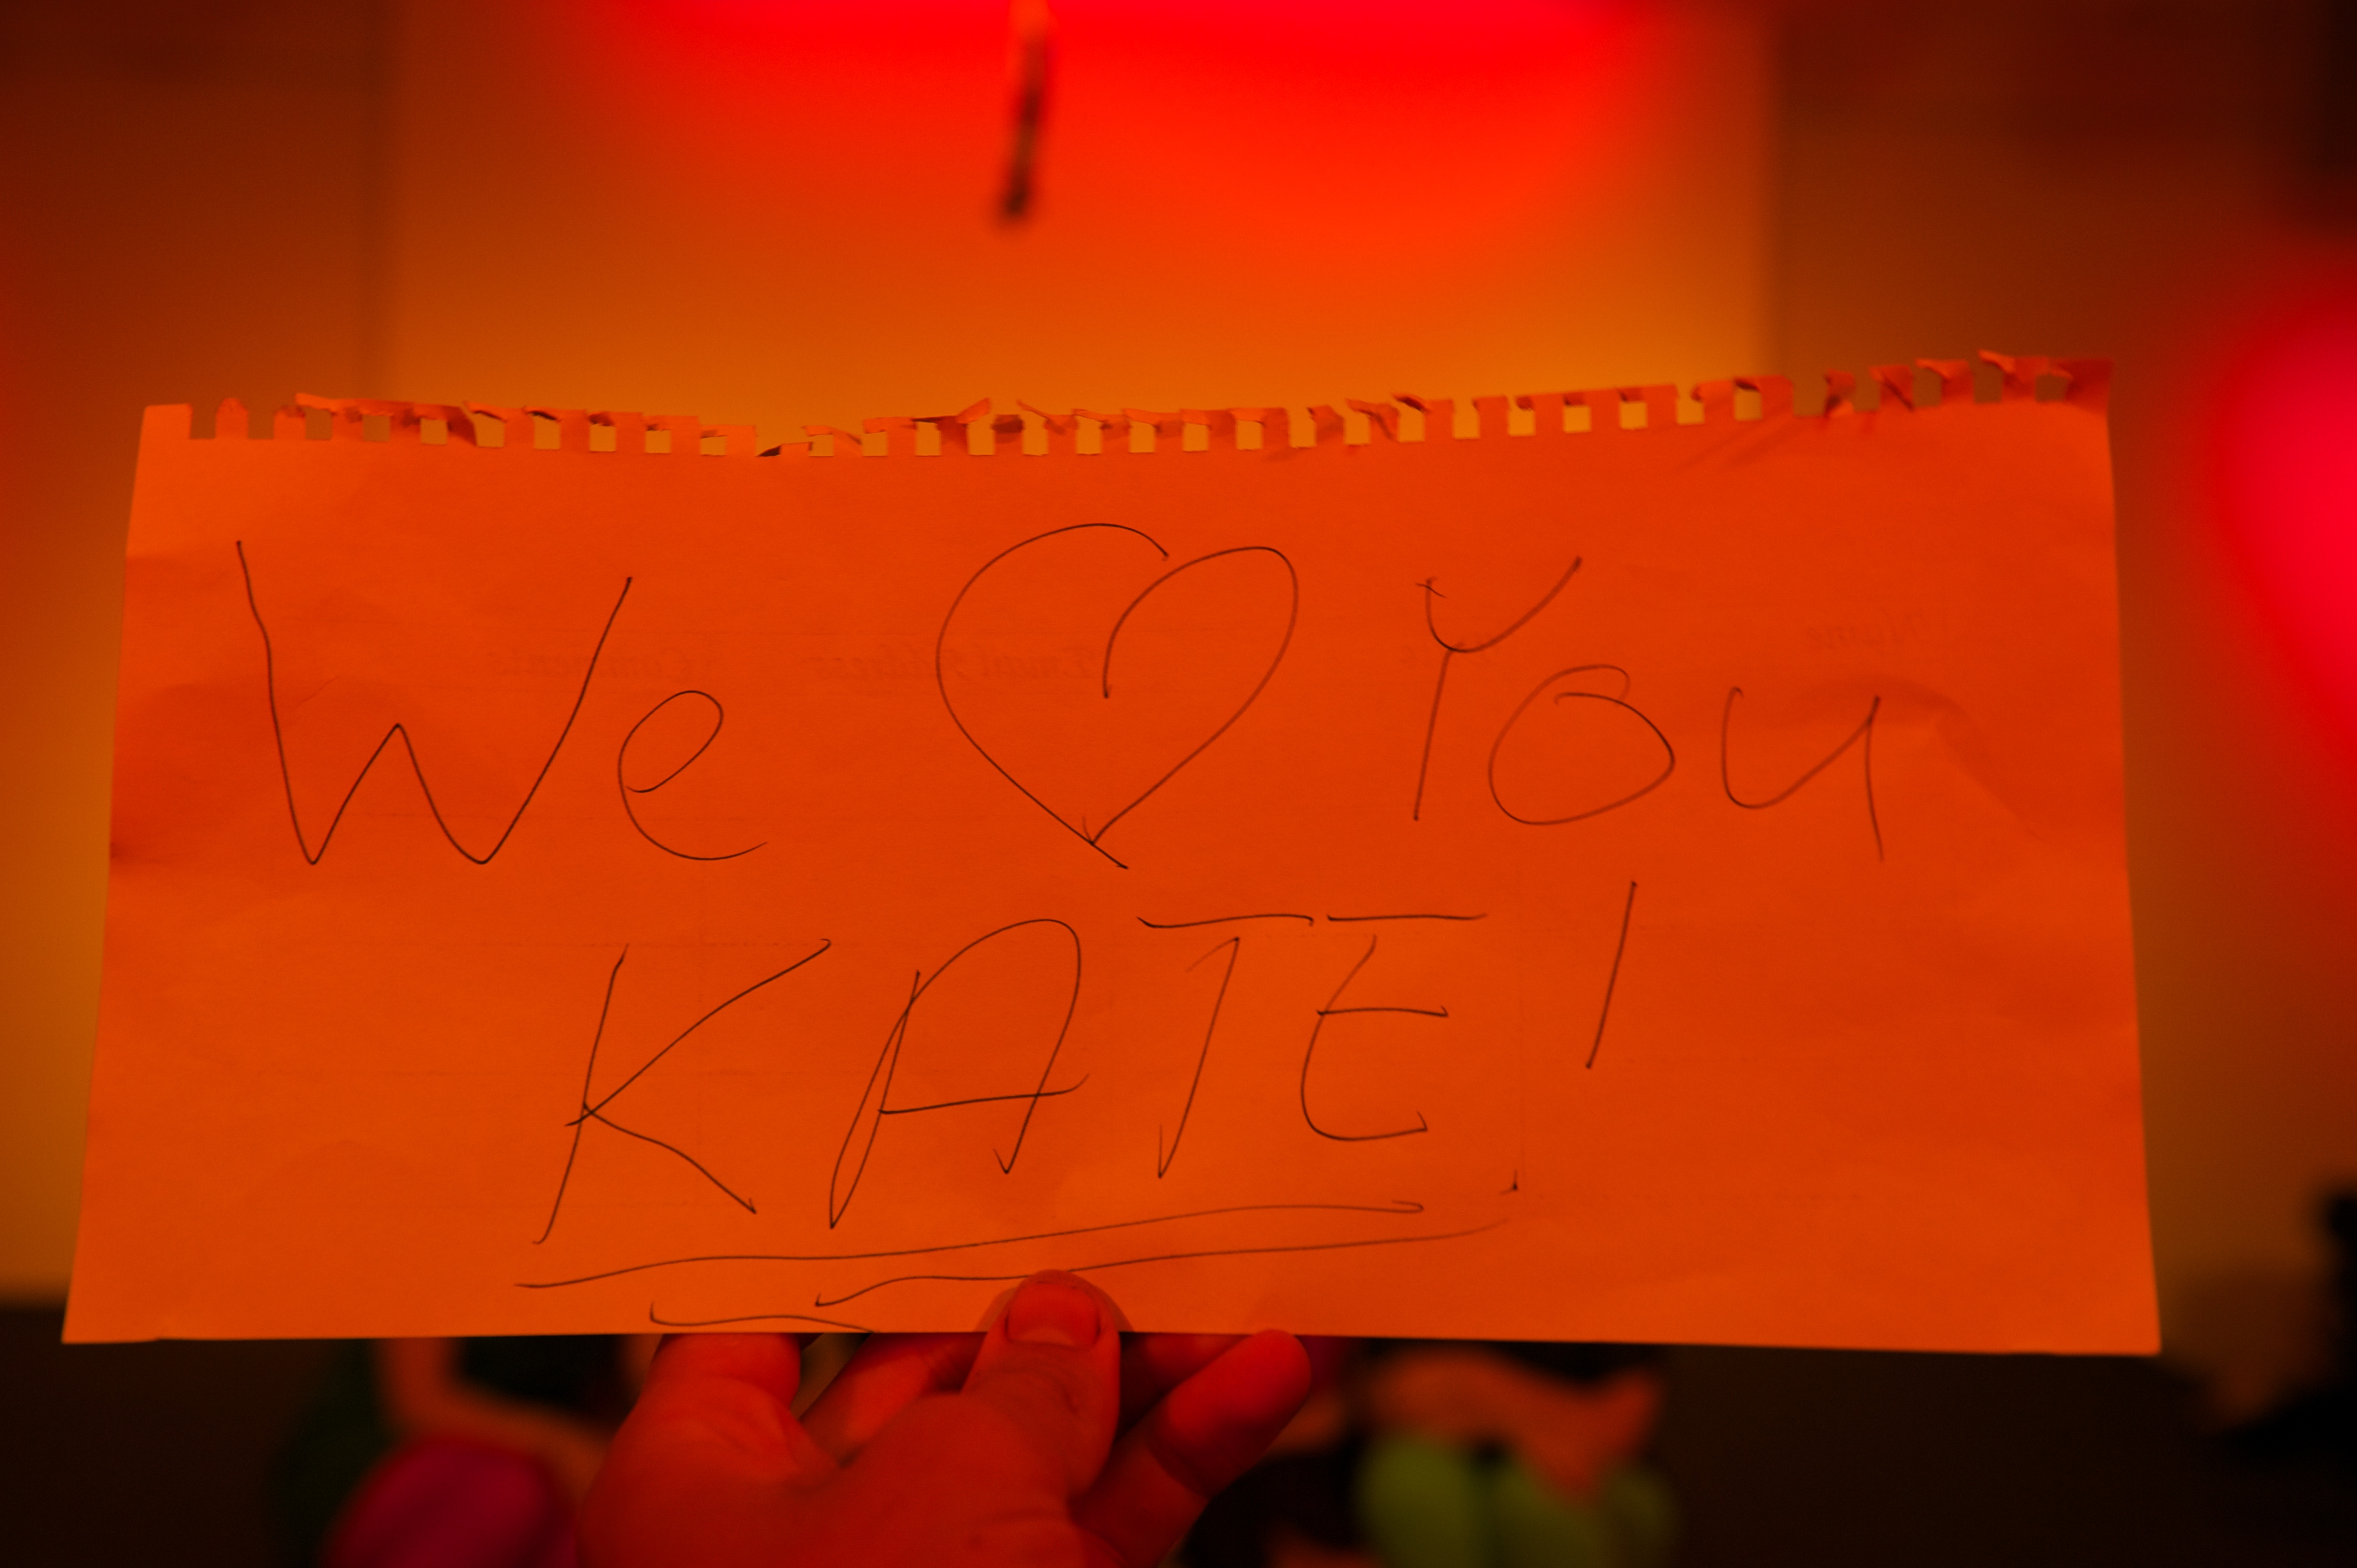 We ♡ You
KATE!